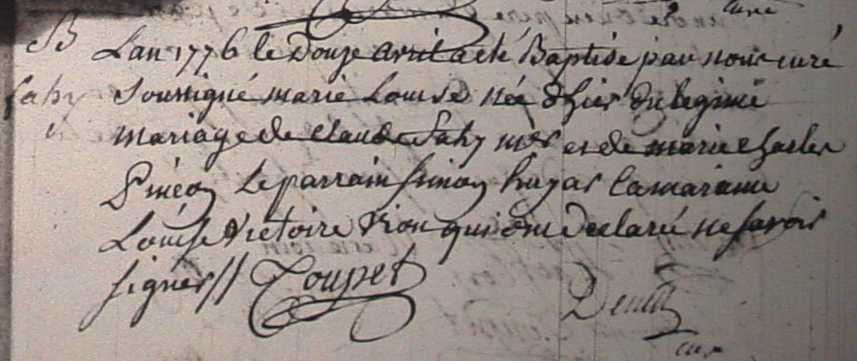 B
Lan 1776 le Douze avril a eté Baptisé par nous curé
Sahy soussigné marie Louise née d'hier du legime
mariage de claude Sahy mès et de marie charles
Simeon Le parrain simon huyar La maraine
Louise victoire vion qui ont declaré ne savoir
signer // Coupet